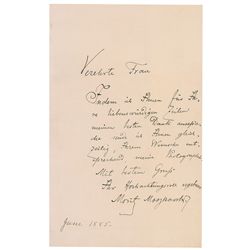 Verehrte Frau
Indem ich Ihnen für Ih-
re liebenswürdigen Zeilen
meinen besten Dank ausspreche,
ich Ihnen gleich-
zeitig, Ihrem Wunsche ent-
sprechend meine Photographie
Mit besten Gruß
Ihr Hochachtungsvoll ergebener
Moritz Moszkowski
June 1885.